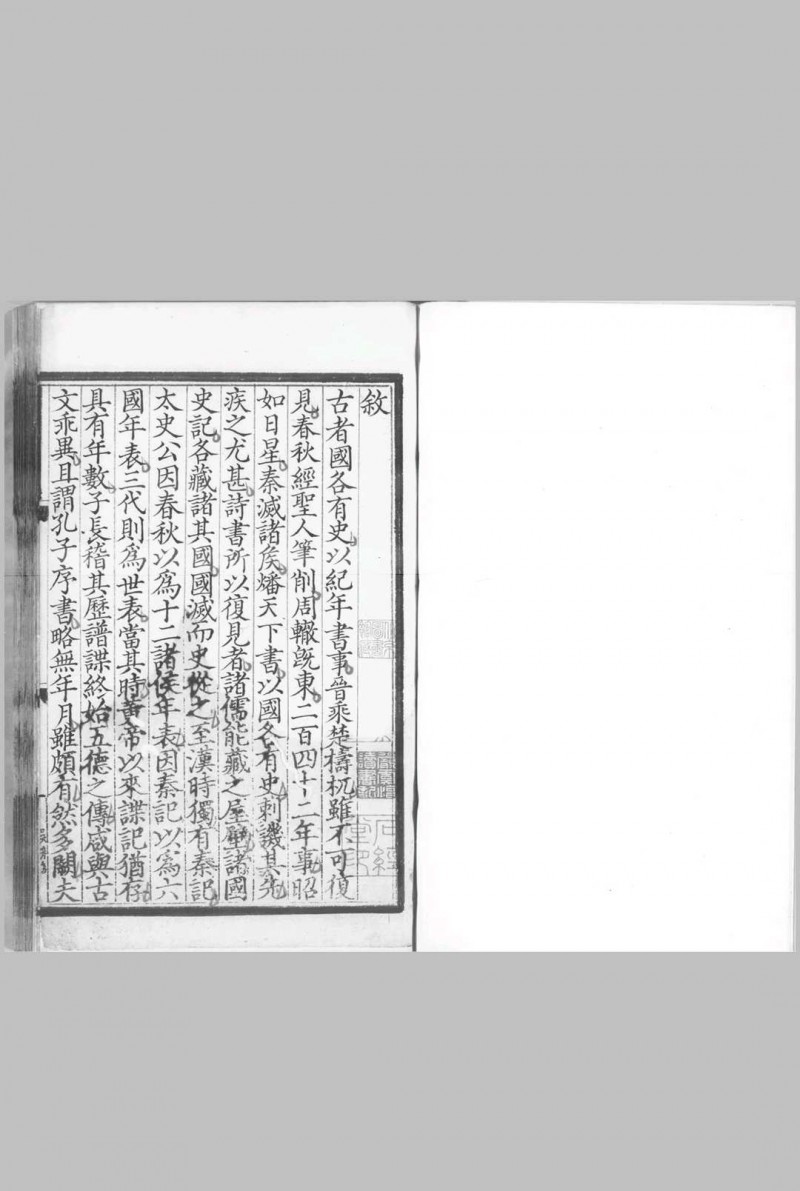 敘
古者國各有史以紀年書事晉乘楚檮杌雖不可復
見春秋經聖人筆削周轍既東二百四十二年事昭
如日星秦滅諸侯燔天下書以國各有史刺譏其先
疾之尤甚詩書所以復見者諸儒能藏之屋壁諸國
史記各藏諸其國國滅而史從之至漢時獨有秦記
太史公因春秋以為十二諸侯年表因秦記以為六
國年表三代則為世表當其時黃帝以來諜記猶存
具有年數子長稽其歷譜諜終始五德之傳咸與古
文乖異且謂孔子序書略無年月雖頗有然多闕夫